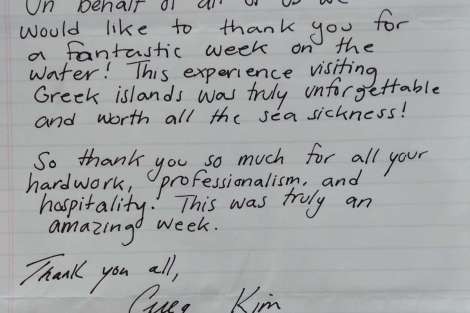 On behalf of all of us we
would like to thank you for
a fantastic week on the
water! This experience visiting
Greek islands was truly unforgettable
and worth all the sea sickness!
So thank you so much for all your
hardwork, professionalism, and
hospitality. This was truly an
amazing week.
Thank you all,
Greg Kim